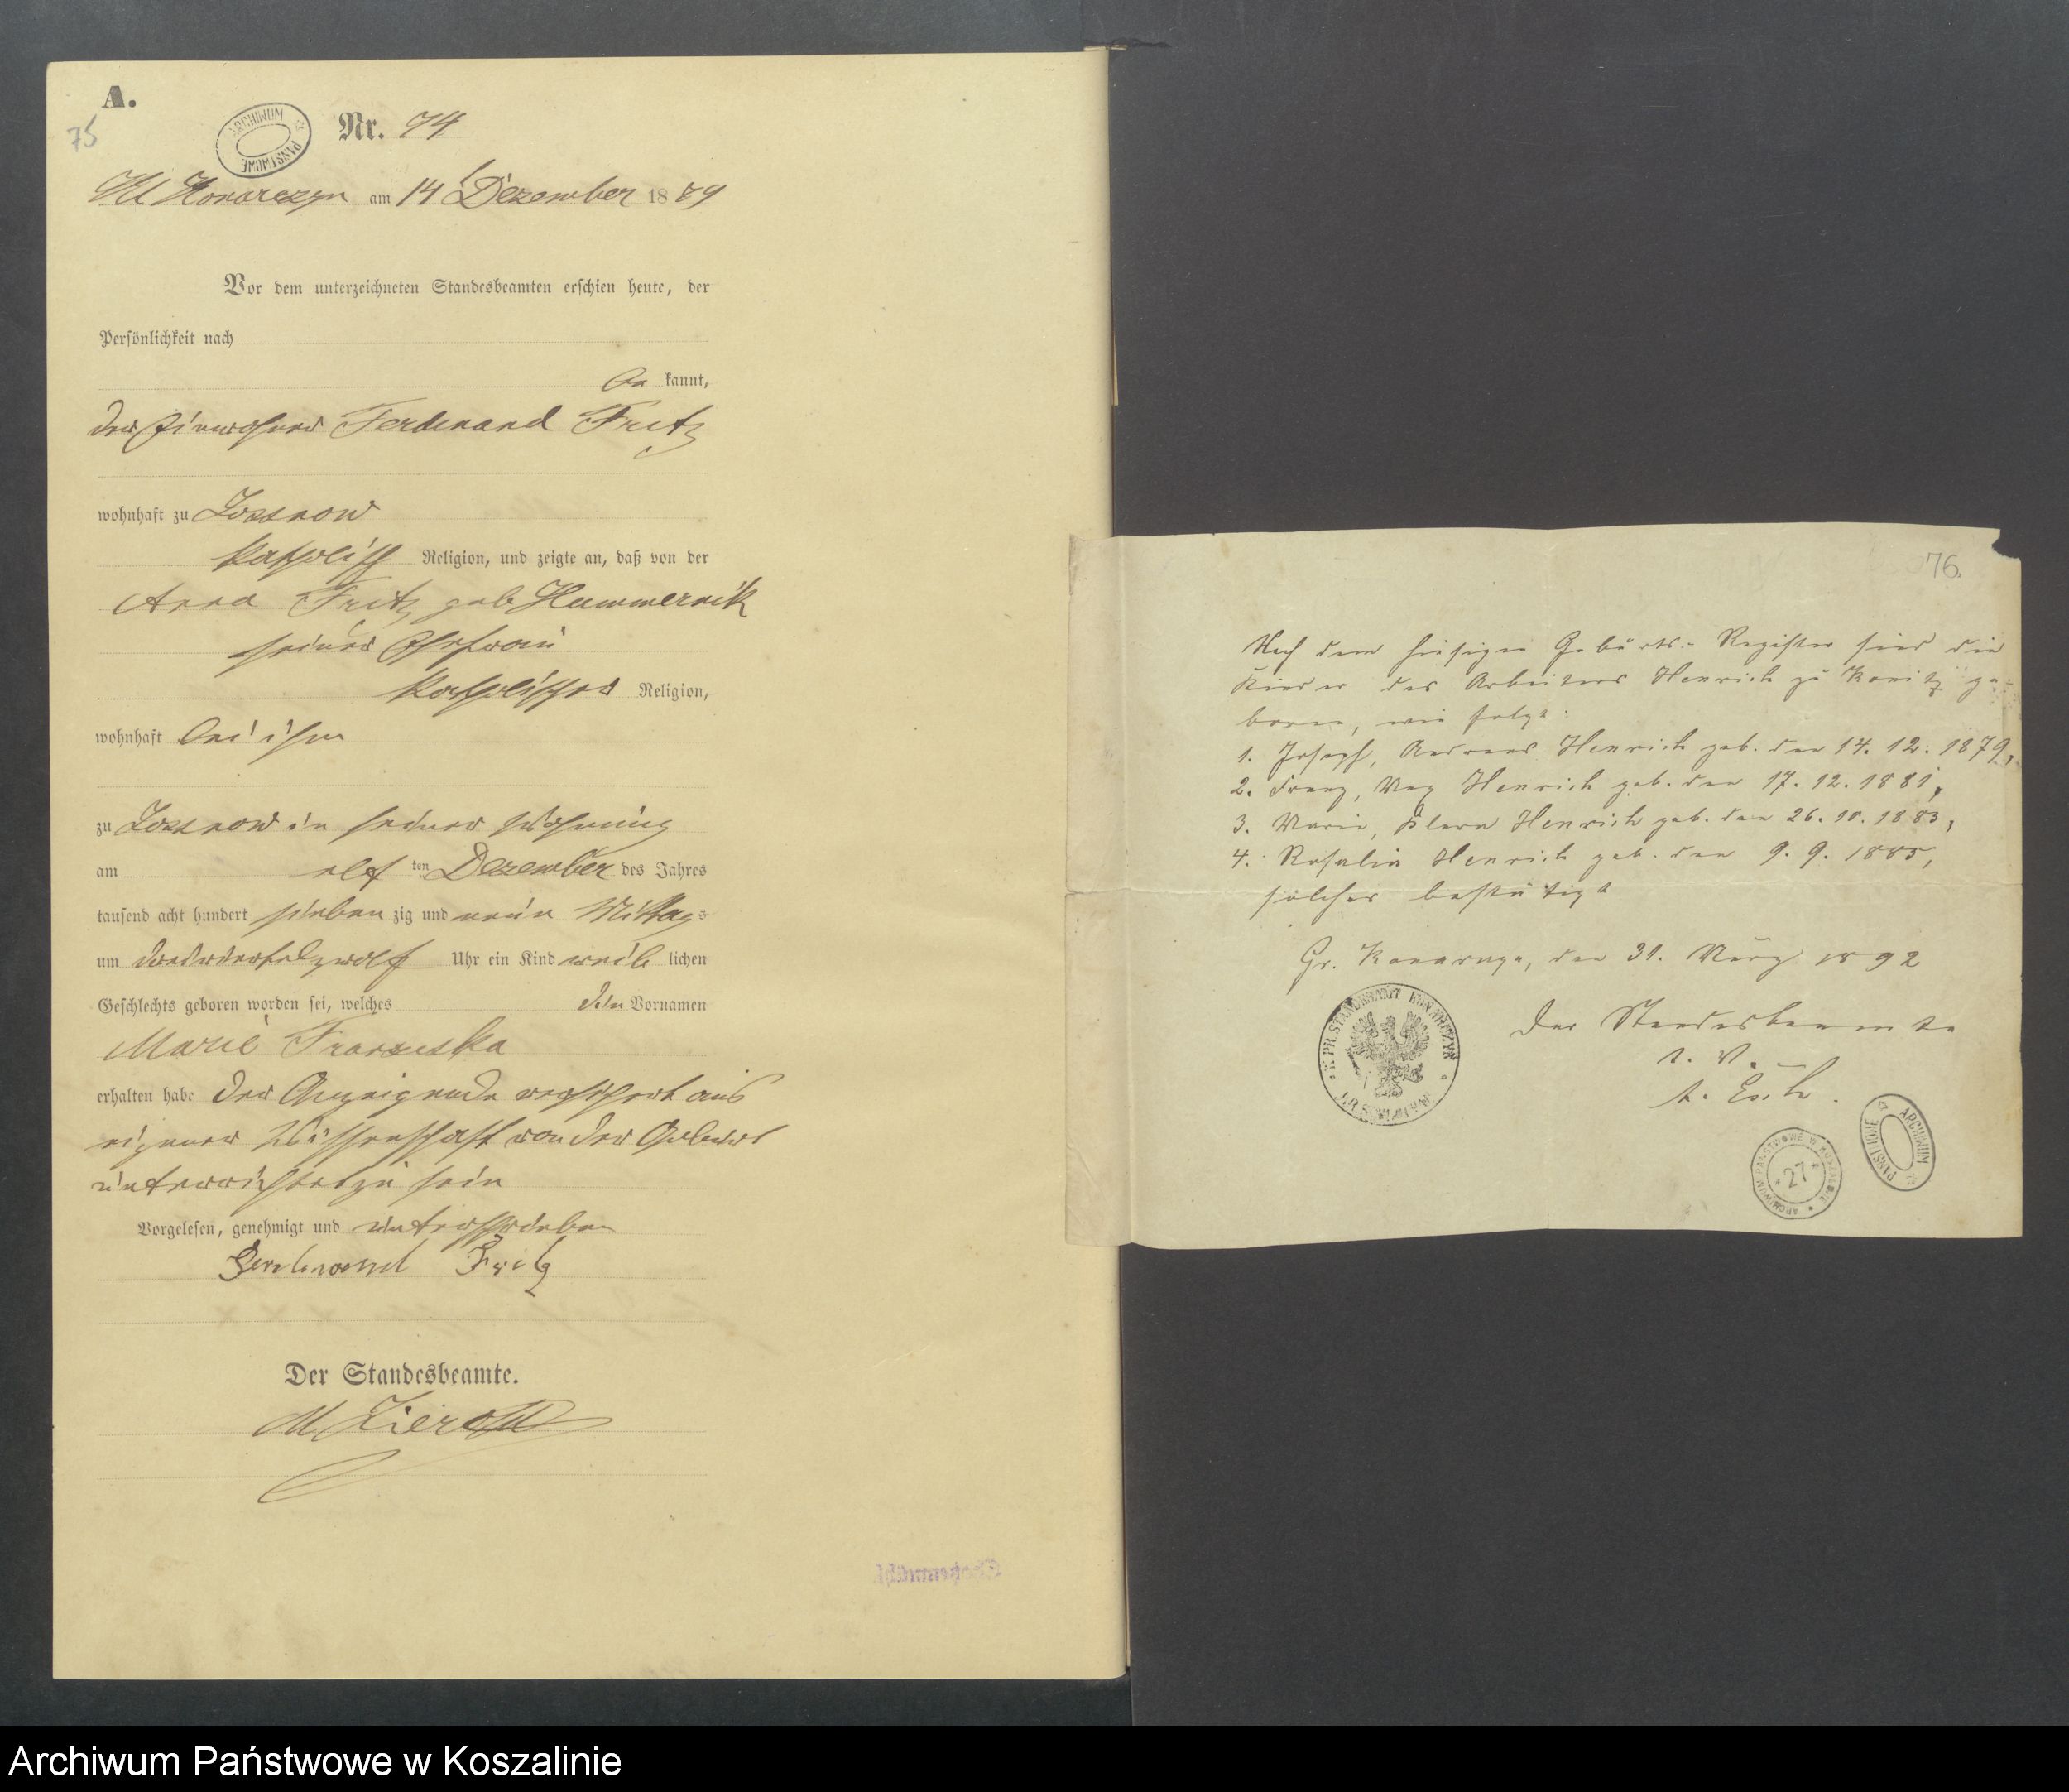 A.
75
ARCHIWUM PAŃSTWOWE
Nr. 74
Kl Konarczyn am 14 Dezember 1879
Vor dem unterzeichneten Standesbeamten erschien heute, der
Persönlichkeit nach
be kannt,
der Einwohner Ferdinand Fritz
wohnhaft zu Lossnow
katholisch Religion, und zeigte an, daß von der
Anna Fritz geb Hammernik
seiner Ehefrau
katholischer Religion,
wohnhaft bei ihm
zu Lossnow in seiner Wohnung
am elf ten Dezember des Jahres
tausend acht hundert sieben zig und neun Mittags
um dreiviertelzwölf Uhr ein Kind weib lichen
Geschlechts geboren worden sei, welches den Vornamen
Marie Franziska
erhalten habe Der Anzeigende versichert aus
eigener Wissenschaft von der Geburt
unterrichtet zu sein
Vorgelesen, genehmigt und unterschrieben
Ferdinand Fritz
Der Standesbeamte.
76.
Nach dem hiesigen Geburts-Register sind die
Kinder des Arbeiters Henrich zu Konitz ge-
boren, wie folgt:
1. Joseph, Andreas Henrich geb. den 14. 12. 1879,
2. Franz, Max Henrich geb. den 17. 12. 1881,
3. Marie, Klara Henrich geb. den 26. 10. 1883,
4. Rosalie Henrich geb. den 9. 9. 1885,
solches bestätigt
Gr. Konarczyn, den 31. März 1892
Der Standesbeamte
K. PR. STANDESAMT KONARCZYN
ARCHIWUM PAŃSTWOWE W KOSZALINIE
27
ARCHIWUM PAŃSTWOWE
Archiwum Państwowe w Koszalinie